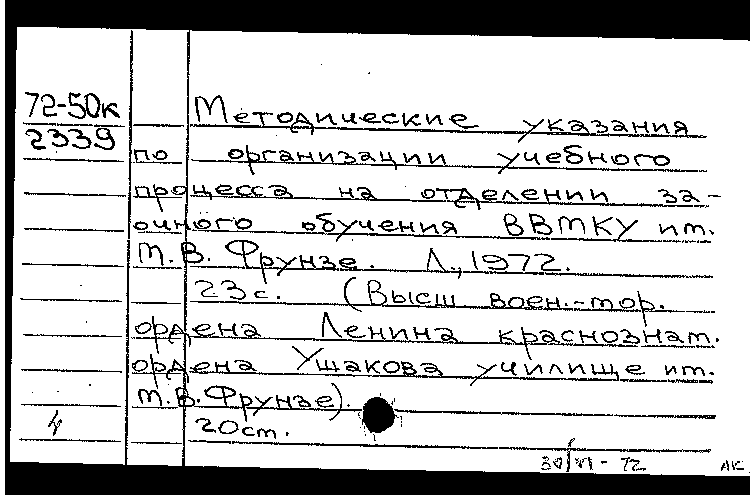 72-50к
2339
Методические указания
по организации учебного
процесса на отделении за-
очного обучения ВВМКУ им.
М.В. Фрунзе. Л., 1972.
23с. (Высш. воен.-мор.
ордена Ленина краснознам.
ордена Ушакова училище им.
М.В. Фрунзе).
20см.
4
30/VI-72 АК